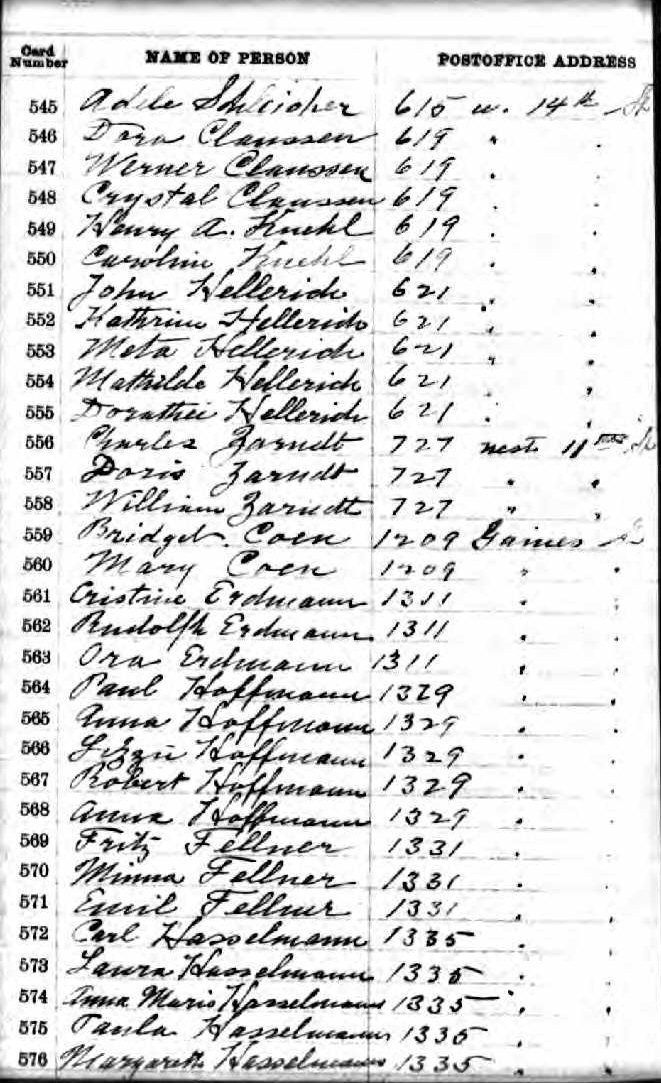 Card Number NAME OF PERSON POSTOFFICE ADDRESS
545 Adele Schleicher 615 w. 14th St
546 Dora Claussen 619 " "
547 Werner Claussen 619 " "
548 Crystal Claussen 619 " "
549 Henry A. Kuehl 619 " "
550 Caroline Kuehl 619 " "
551 John Hellerich 621 " "
552 Kathrine Hellerich 621 " "
553 Meta Hellerich 621 " "
554 Mathilde Hellerich 621 " "
555 Dorathei Hellerich 621 " "
556 Charles Zarndt 727 west 11th St
557 Doris Zarndt 727 " "
558 William Zarndt 727 " "
559 Bridget Coen 1209 Gaines St
560 Mary Coen 1209 " "
561 Cristine Erdmann 1311 " "
562 Rudolph Erdmann 1311 " "
563 Ora Erdmann 1311 " "
564 Paul Hoffmann 1329 " "
565 Anna Hoffmann 1329 " "
566 Lizzie Hoffmann 1329 " "
567 Robert Hoffmann 1329 " "
568 Anna Hoffmann 1329 " "
569 Fritz Fellner 1331 " "
570 Minna Fellner 1331 " "
571 Emil Fellner 1331 " "
572 Carl Hasselmann 1335 " "
573 Laura Hasselmann 1335 " "
574 Anna Marie Hasselmann 1335 " "
575 Paula Hasselmann 1335 " "
576 Margareth Hasselmann 1335 " "